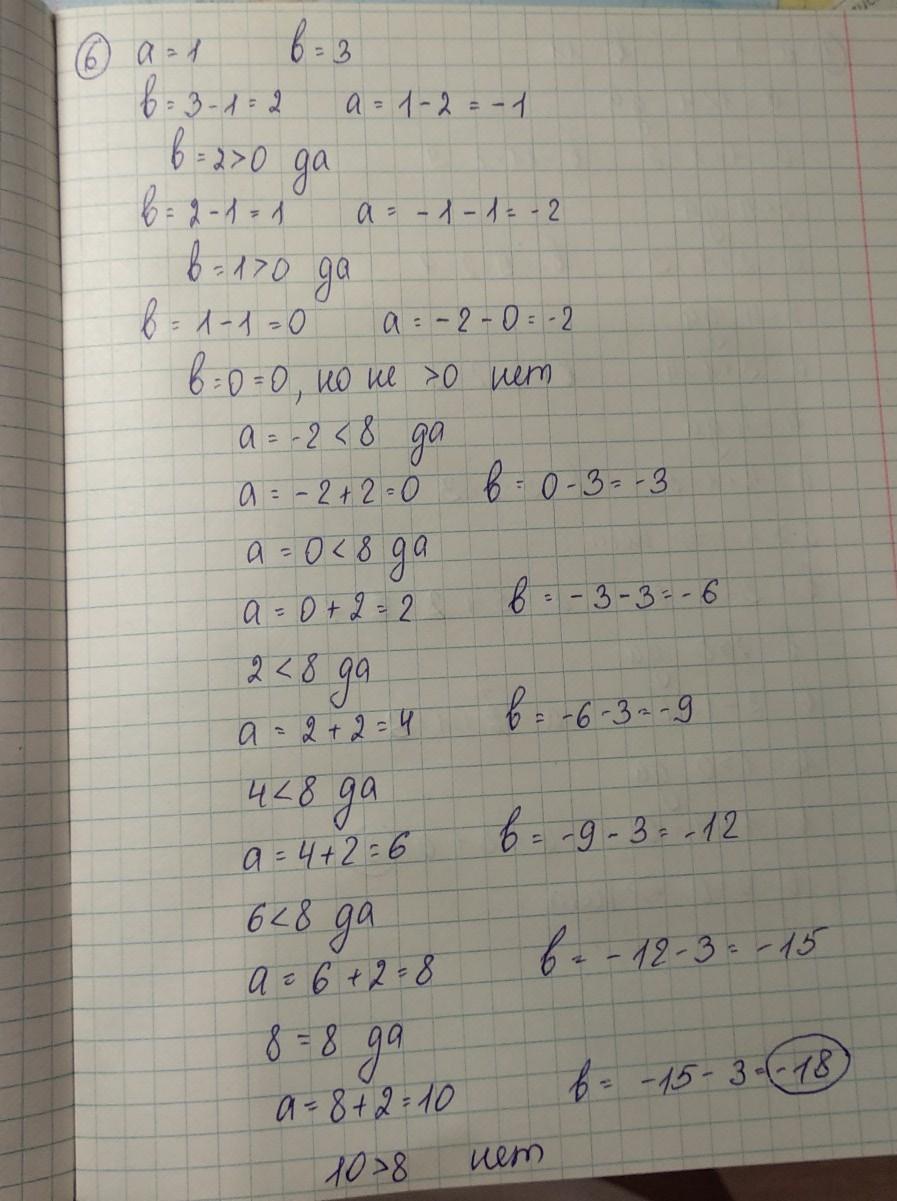 6 a = 1 в = 3
в = 3 - 1 = 2 a = 1 - 2 = - 1
в = 2 > 0 да
в = 2 - 1 = 1 a = - 1 - 1 = - 2
в = 1 > 0 да
в = 1 - 1 = 0 a = - 2 - 0 = - 2
в = 0 = 0, но не > 0 нет
a = - 2 < 8 да
a = - 2 + 2 = 0 в = 0 - 3 = - 3
a = 0 < 8 да
a = 0 + 2 = 2 в = - 3 - 3 = - 6
2 < 8 да
a = 2 + 2 = 4 в = - 6 - 3 = - 9
4 < 8 да
a = 4 + 2 = 6 в = - 9 - 3 = - 12
6 < 8 да
a = 6 + 2 = 8 в = - 12 - 3 = - 15
8 = 8 да
a = 8 + 2 = 10 в = - 15 - 3 = - 18
10 > 8 нет